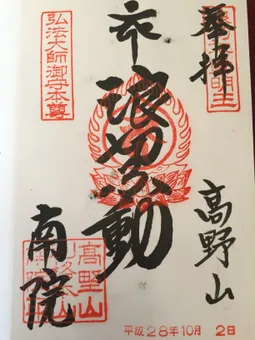 奉拝
高野山
浪切不動
弘法大師御守本尊
南院
高野山
平成28年10月 2日